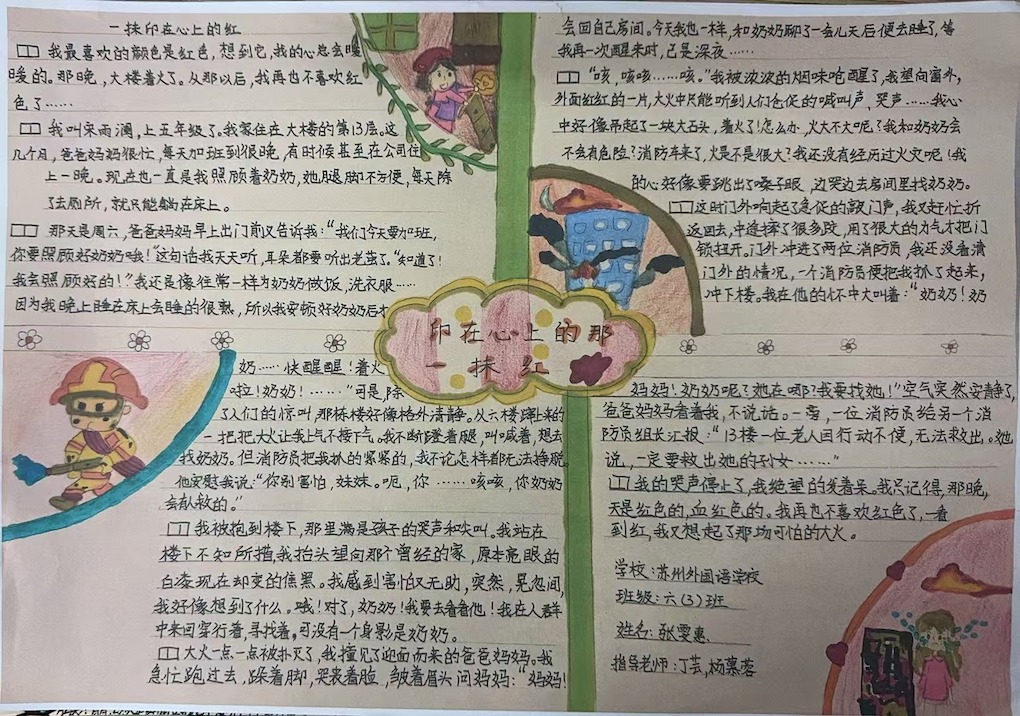 一抹印在心上的红
我最喜欢的颜色是红色，想到它，我的心总会暖
暖的。那晚，大楼着火了。从那以后，我再也不喜欢红
色了……
我叫宋雨澜，上五年级了。我家住在大楼的第13层。这
几个月，爸爸妈妈很忙，每天加班到很晚，有时候甚至在公司住
上一晚。现在也一直是我照顾着奶奶，她腿脚不方便，每天除
了去厕所，就只能躺在床上。
那天是周六，爸爸妈妈早上出门前又告诉我：“我们今天要加班，
你要照顾好奶奶哦！”这句话我天天听，耳朵都要听出老茧了。“知道了！
我会照顾好的！”我还是像往常一样为奶奶做饭，洗衣服……
因为我晚上睡在床上会睡的很熟，所以我安顿好奶奶后才
会回自己房间。今天我也一样，和奶奶聊了一会儿天后便去睡了，等
我再一次醒来时，已是深夜……
“咳，咳咳……咳。”我被浓浓的烟味呛醒了，我望向窗外，
外面红红的一片，大火中只能听到人们仓促的喊叫声，哭声……我心
中好像吊起了一块大石头，着火了！怎么办，火大不大呢？我和奶奶会
不会有危险？消防车来了，火是不是很大？我还没有经历过火灾呢！我
的心好像要跳出了嗓子眼，边哭边去房间里找奶奶。
这时门外响起了急促的敲门声，我又赶忙折
返回去，中途摔了很多跤，用了很大的力气才把门
锁扭开。门外冲进了两位消防员，我还没看清
门外的情况，一个消防员便把我抓了起来，
冲下楼。我在他的怀中大叫着：“奶奶！奶
印在心上的那
一抹红
奶……快醒醒！着火
啦！奶奶！……”可是，除
了人们的惊叫，那栋楼好像格外清静。从六楼蹿上来的
一把把大火让我上气不接下气。我不断蹬着腿，叫喊着，想去
找奶奶。但消防员把我抓的紧紧的，我不论怎样都无法挣脱。
他安慰我说：“你别害怕，妹妹。呃，你……咳咳，你奶奶
会获救的。”
我被抱到楼下，那里满是孩子的哭声和尖叫。我站在
楼下不知所措，我抬头望向那个曾经的家，原本亮眼的
白漆现在却变的焦黑。我感到害怕又无助，突然，晃忽间，
我好像想到了什么。哦！对了，奶奶！我要去看看他！我在人群
中来回穿行着，寻找着。可没有一个身影是奶奶。
大火一点一点被扑灭了，我撞见了迎面而来的爸爸妈妈。我
急忙跑过去，跺着脚，哭丧着脸，皱着眉头问妈妈：“妈妈！
妈妈！奶奶呢？她在哪？我要找她！”空气突然安静了，
爸爸妈妈看着我，不说话。一旁，一位消防员给另一个消
防员组长汇报：“13楼一位老人因行动不便，无法救出。她
说，一定要救出她的孙女……”
我的哭声停止了，我绝望的发着呆。我只记得，那晚，
天是红色的，血红色的。我再也不喜欢红色了，一看
到红，我又想起了那场可怕的大火。
学校：苏州外国语学校
班级：六（3）班
姓名：张雯惠
指导老师：丁芸，杨慕蓉